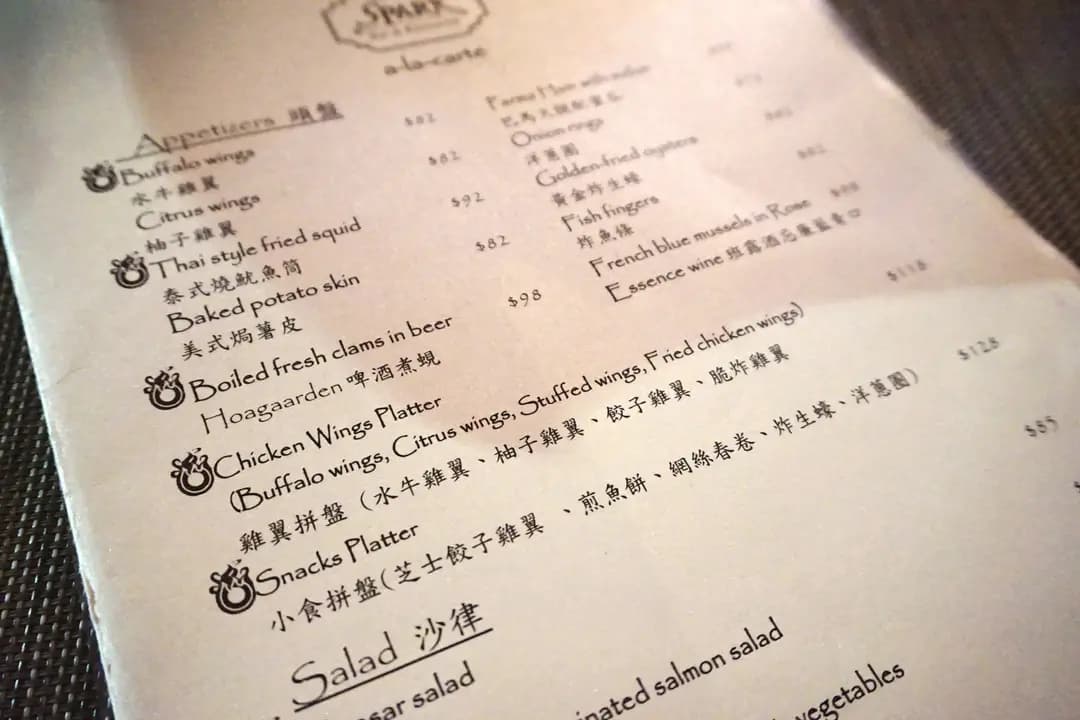 SPARK
a-la-carte
Appetizers 頭盤
Buffalo wings $82
水牛雞翼
Citrus wings $82
柚子雞翼
Thai style fried squid $92
泰式燒魷魚筒
Baked potato skin $82
美式焗薯皮
Boiled fresh clams in beer $98
Hoagaarden 啤酒煮蜆
Parma Ham with melon
巴馬火腿配蜜瓜
Onion rings
洋蔥圈
Golden-fried oysters
黃金炸生蠔
Fish fingers
炸魚條
French blue mussels in Rose
Essence wine 玫露酒忌廉藍青口
Chicken Wings Platter $118
(Buffalo wings, Citrus wings, Stuffed wings, Fried chicken wings)
雞翼拼盤 (水牛雞翼、柚子雞翼、餃子雞翼、脆炸雞翼
Snacks Platter $128
小食拼盤(芝士餃子雞翼 、煎魚餅、網絲春卷、炸生蠔、洋蔥圈)
Salad 沙律
salad $85
salmon salad
vegetables